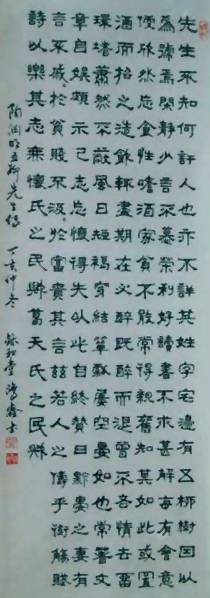 先生不知何許人也亦不詳其姓字宅邊有五柳樹因以
為號焉閑靜少言不慕榮利好讀書不求甚解每有會意
便欣然忘食性嗜酒家貧不能常得親舊知其如此或置
酒而招之造飲輒盡期在必醉既醉而退曾不吝情去留
環堵蕭然不蔽風日短褐穿結簞瓢屢空晏如也常著文
章自娛頗示己志忘懷得失以此自終贊曰黔婁之妻有
言不戚〻於貧賤不汲〻於富貴其言茲若人之儔乎銜觴賦
詩以樂其志無懷氏之民歟葛天氏之民歟
陶淵明五柳先生傳 丁亥仲冬